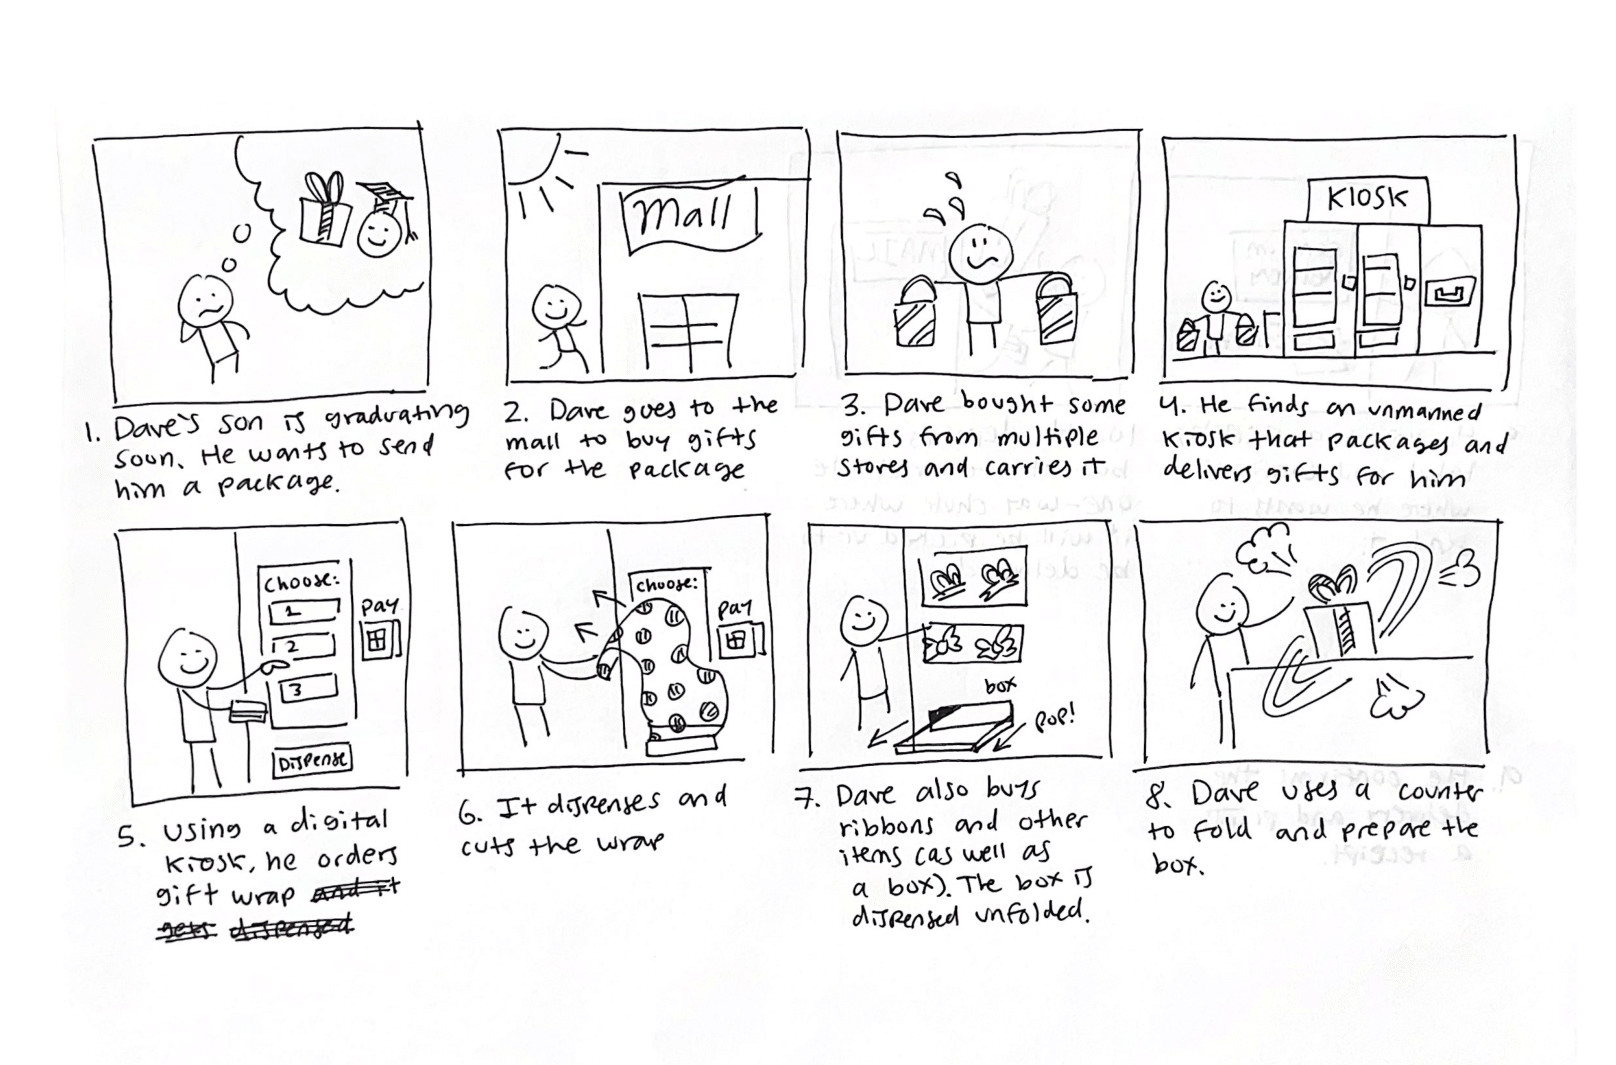 mall
KIOSK
1. Dave's son is graduating
soon. He wants to send
him a package.
2. Dave goes to the
mall to buy gifts
for the package
3. Dave bought some
gifts from multiple
stores and carries it
4. He finds an unmanned
kiosk that packages and
delivers gifts for him
choose:
1
2
3
Dispense
pay
choose:
pay
box
pop!
5. Using a digital
kiosk, he orders
gift wrap and it
gets dispensed
6. It dispenses and
cuts the wrap
7. Dave also buys
ribbons and other
items (as well as
a box). The box is
dispensed unfolded.
8. Dave uses a counter
to fold and prepare the
box.